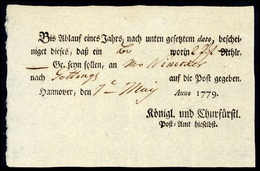 Bis Ablauf eines Jahrs, nach unten gesetztem dato, beschei-
niget dieses, daß ein worin Rthlr.
Gr. seyn sollen, an
nach auf die Post gegeben.
Hannover, den 7 May Anno 1779.
Königl. und Churfürstl.
Post-Amt hieselbst.